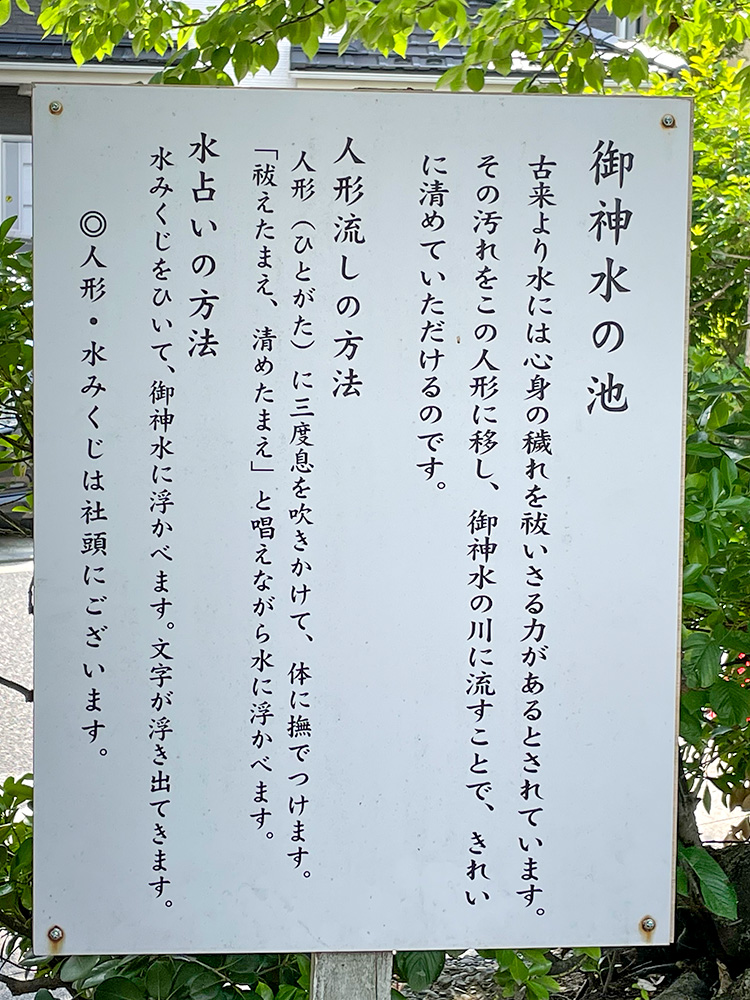 御神水の池
古来より水には心身の穢れを祓いさる力があるとされています。
その汚れをこの人形に移し、御神水の川に流すことで、きれい
に清めていただけるのです。
人形流しの方法
人形（ひとがた）に三度息を吹きかけて、体に撫でつけます。
「祓えたまえ、清めたまえ」と唱えながら水に浮かべます。
水占いの方法
水みくじをひいて、御神水に浮かべます。文字が浮き出てきます。
◎人形・水みくじは社頭にございます。